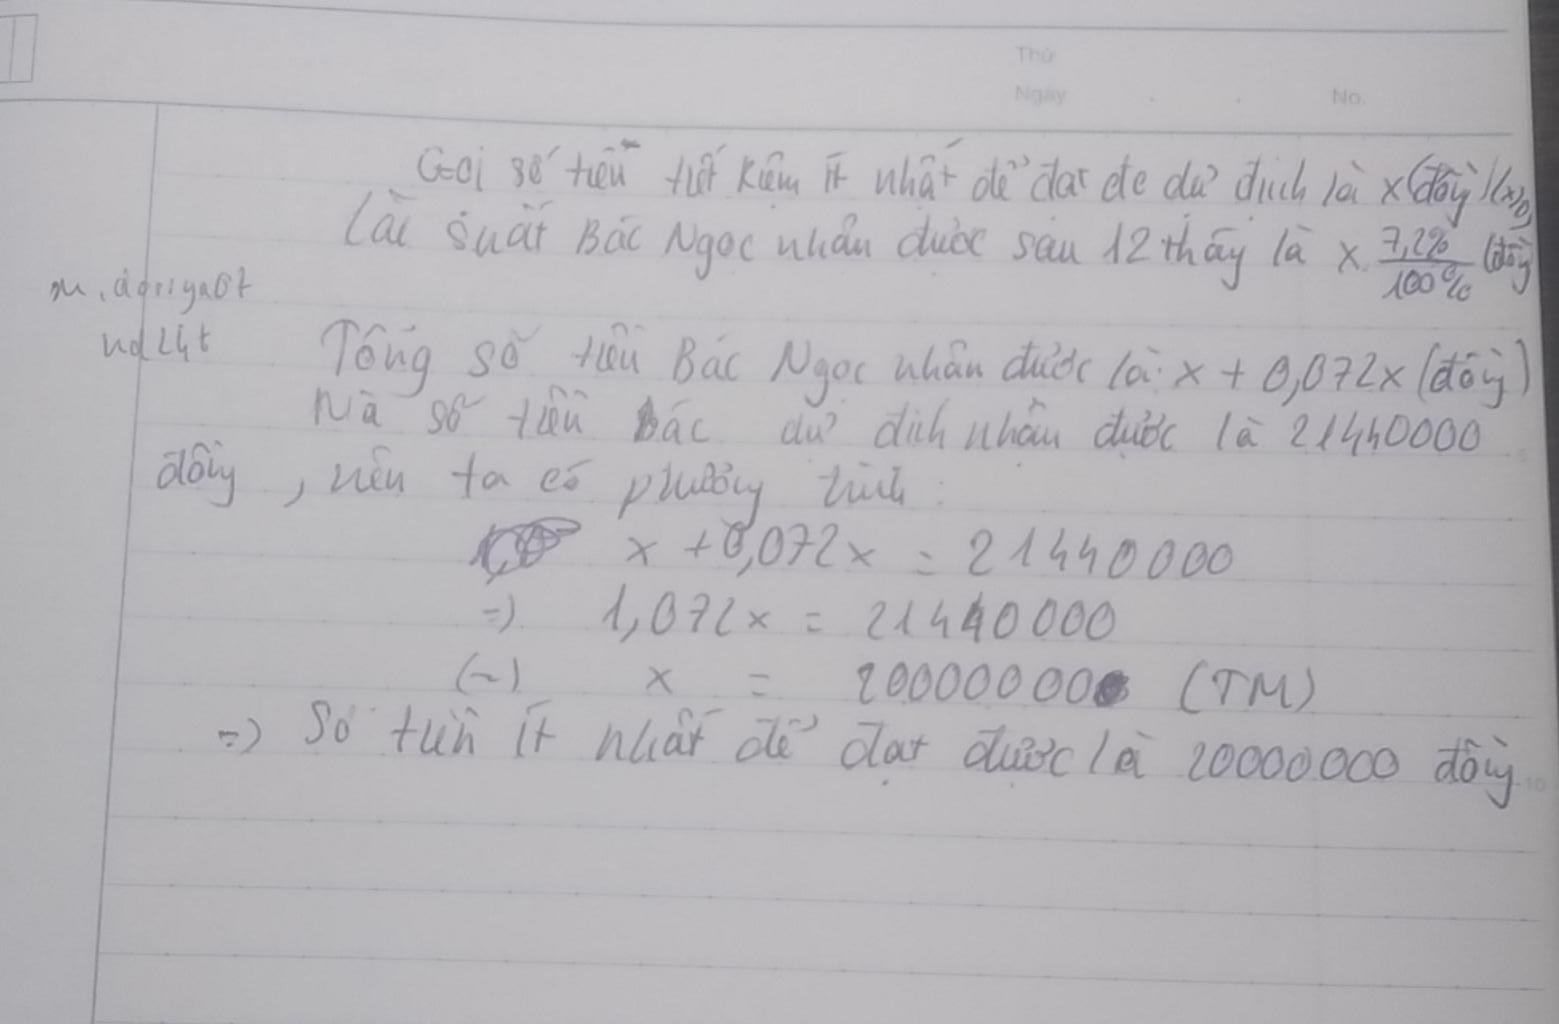 Thứ
Ngày No.
Gọi số tiền tiết kiệm ít nhất để đạt đc dự định là x (đồng) (x>0)
Lãi suất Bác Ngọc nhân được sau 12 tháy là x. 7,2%/100% (đồg
Tổng số tiền Bác Ngọc nhân được là: x + 0,072x (đồng)
Mà số tiền Bác dự định nhân được là 21440000
đồng, nên ta có phương trình:
x + 0,072x = 21440000
=) 1,072x = 21440000
(=) x = 20000000 (TM)
=) Số tiền ít nhất để đạt được là 20000000 đồng